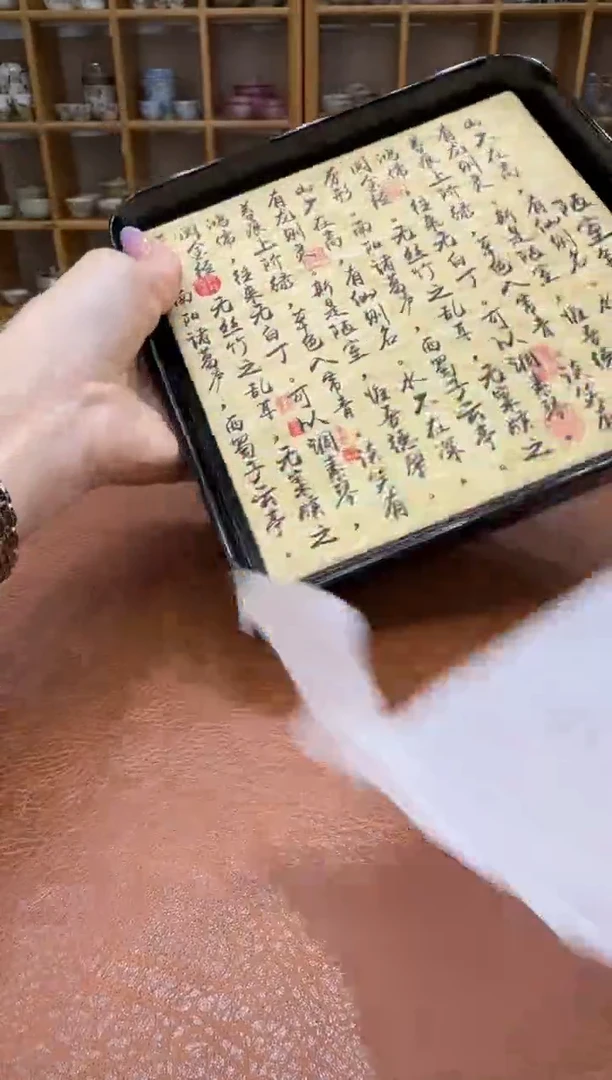 陋室
山不在高，有仙则名
有龙则灵，斯是陋室，惟吾
苔痕上阶绿，草色入帘青，谈笑有
鸿儒，往来无白丁。可以调素琴
阅金经，无丝竹之乱耳，无案牍之
南阳诸葛庐，西蜀子云亭
山不在高，有仙则名。水不在深
有龙则灵，斯是陋室，惟吾德馨
苔痕上阶绿，草色入帘青，谈笑有
鸿儒，往来无白丁。可以调素琴
阅金经，无丝竹之乱耳，无案牍之
南阳诸葛庐，西蜀子云亭。